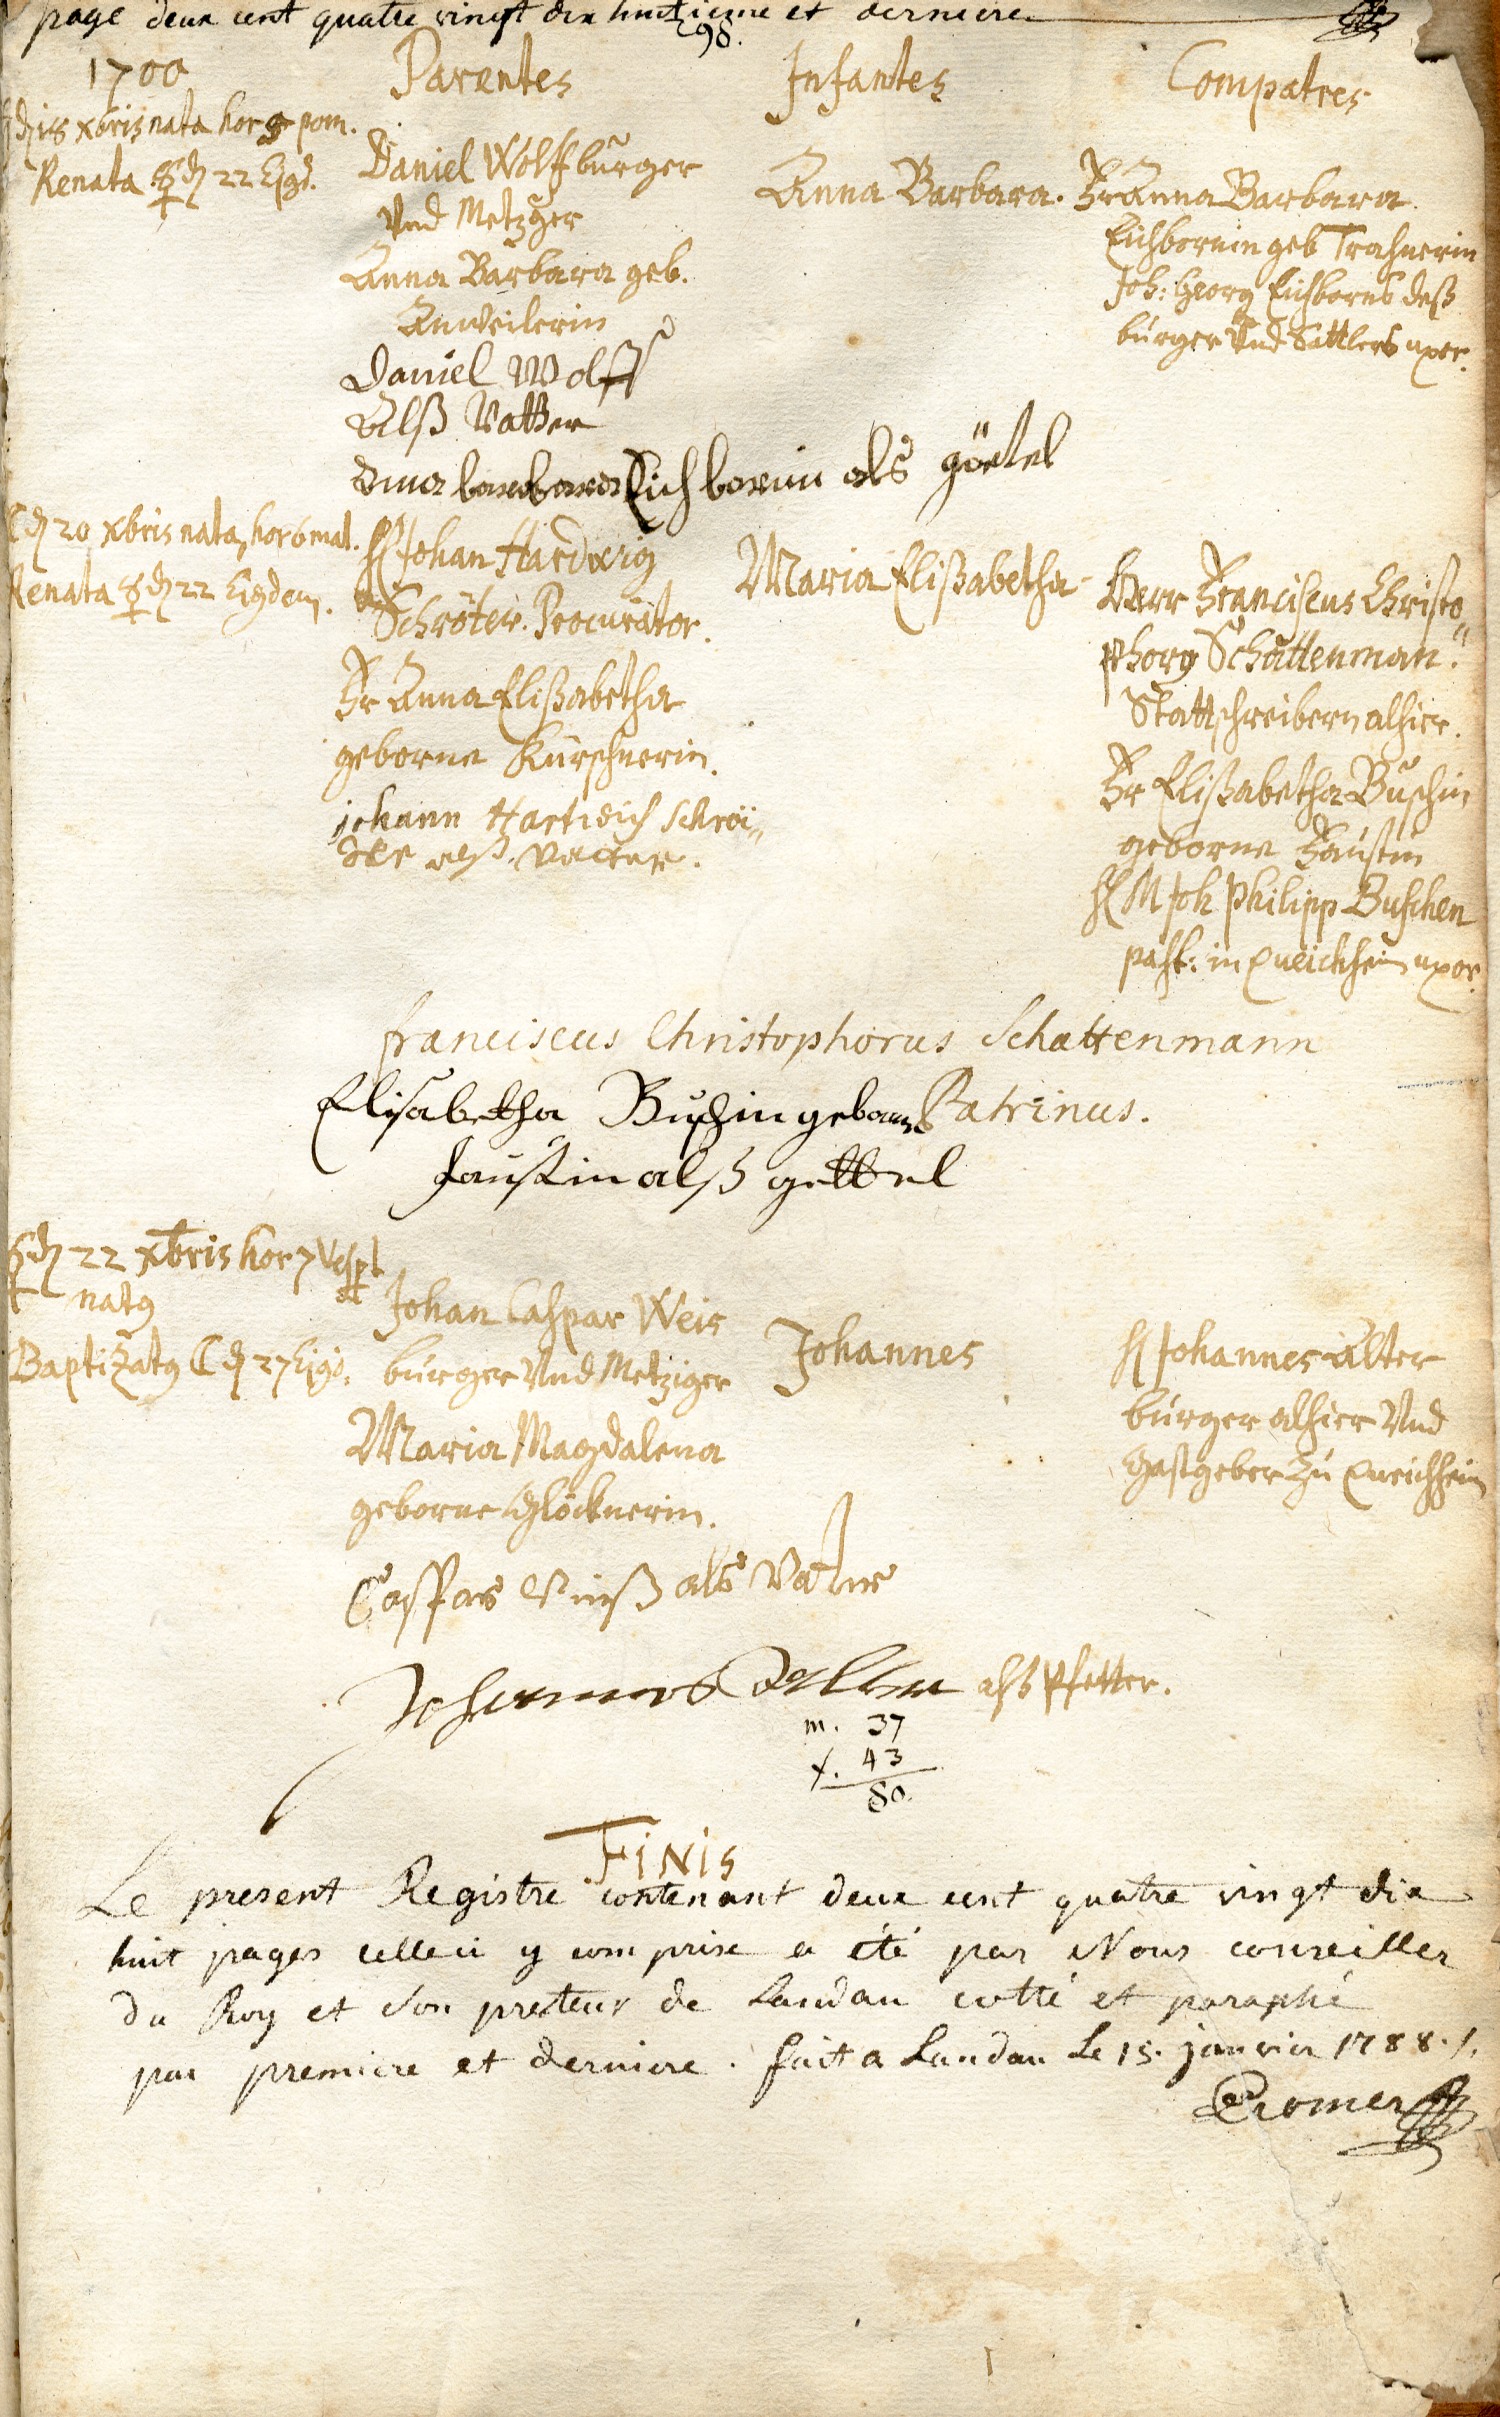 page deux cent quatre vingt dix huitieme et derniere
298.
1700
Parentes
Infantes
Compatres
d 18 xbris nata hor 9 pom.
Renata ☿ d 22 Ejqd.
Daniel Wolff burger
Und Metzger
Anna Barbara geb.
Anweilerin
Anna Barbara.
Fr Anna Barbara
Eichbornin geb Trasnerin
Joh: Georg Eichborns deß
burger Und Sattlers uxor.
Daniel Wolff
Alß Vatter
anna barbara Eichbornin als göetel
☾ d 20 xbris nata, hor 6 mat.
Renata ☿ d 22 Eiqdem.
H Johan Hardwig
Schröter. Procurator.
Fr Anna Elißabetha
geborne Kürschnerin.
Maria Elißabetha
Herr Franciscus Christo
phorus Schattenman.
Stattschreibern alhier.
Fr Elißabetha Buschin
geborne Faustin
H M Joh Philipp Buschen
past: in Queichheim uxor.
johann Hartwich Schröi
ter alß Vatter.
franciscus Christophorus Schattenmann
Patrinus.
Elisabetha Buschin geborne
faustin alß gettel
d 22 xbris hor 7 Vesp
natus
Baptizatus ☾ d 27 Ejqd.
Johan Caspar Weis
burger Und Metziger
Maria Magdalena
geborne Glöcknerin.
Johannes
H Johannes Alter
burger alhier Und
Gastgeber Zu Queichheim
Casspar Weiß als Vatter
Johannes Alter alß Pfetter.
m. 37
f. 43
80.
FINIS
Le present Registre contenant deux cent quatre vingt dix
huit pages celle ci y comprise a été par Nous conseiller
du Roy et Son preteur de Landau cotté et paraphé
par premiere et derniere. fait a Landau Le 15. janvier 1788./.